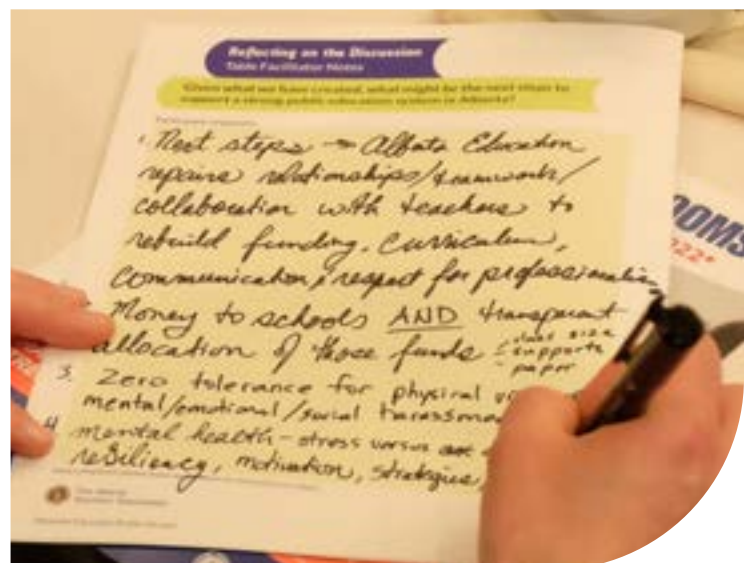 Reflecting on the Discussion
Table Facilitator Notes
Given what we have created, what might be the next steps to
support a strong public education system in Alberta?
1. Next steps → Alberta Education
repairs relationships/teamwork/
collaboration with teachers to
rebuild funding, curriculum,
communication, respect for professionalism
Money to schools AND transparent
allocation of those funds
- class size
- supports
- paper
3. Zero tolerance for physical
mental/emotional/social
4 mental health - stress versus
resiliency, motivation, strategies,
OOMS
2022*